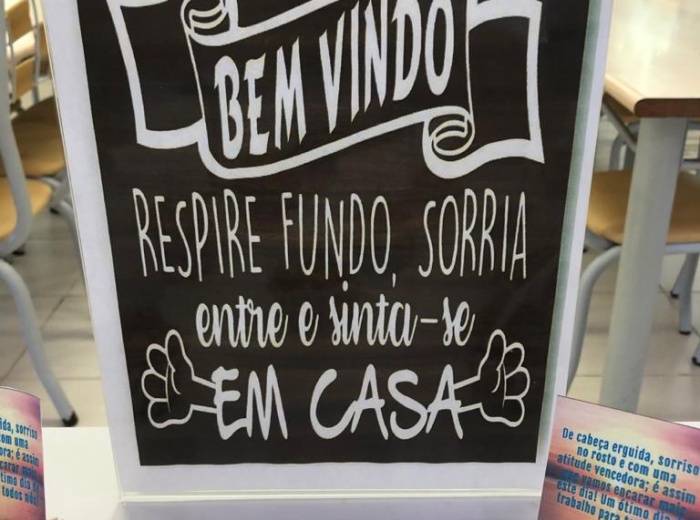 BEM VINDO
RESPIRE FUNDO, SORRIA
entre e sinta-se
EM CASA
ida, sorriso
com uma
ora; é assim
encarar mais
ótimo dia
todos nós!
De cabeça erguida, sorriso
no rosto e com uma
atitude vencedora; é assim
que vamos encarar mais
este dia! Um ótimo dia
trabalho para